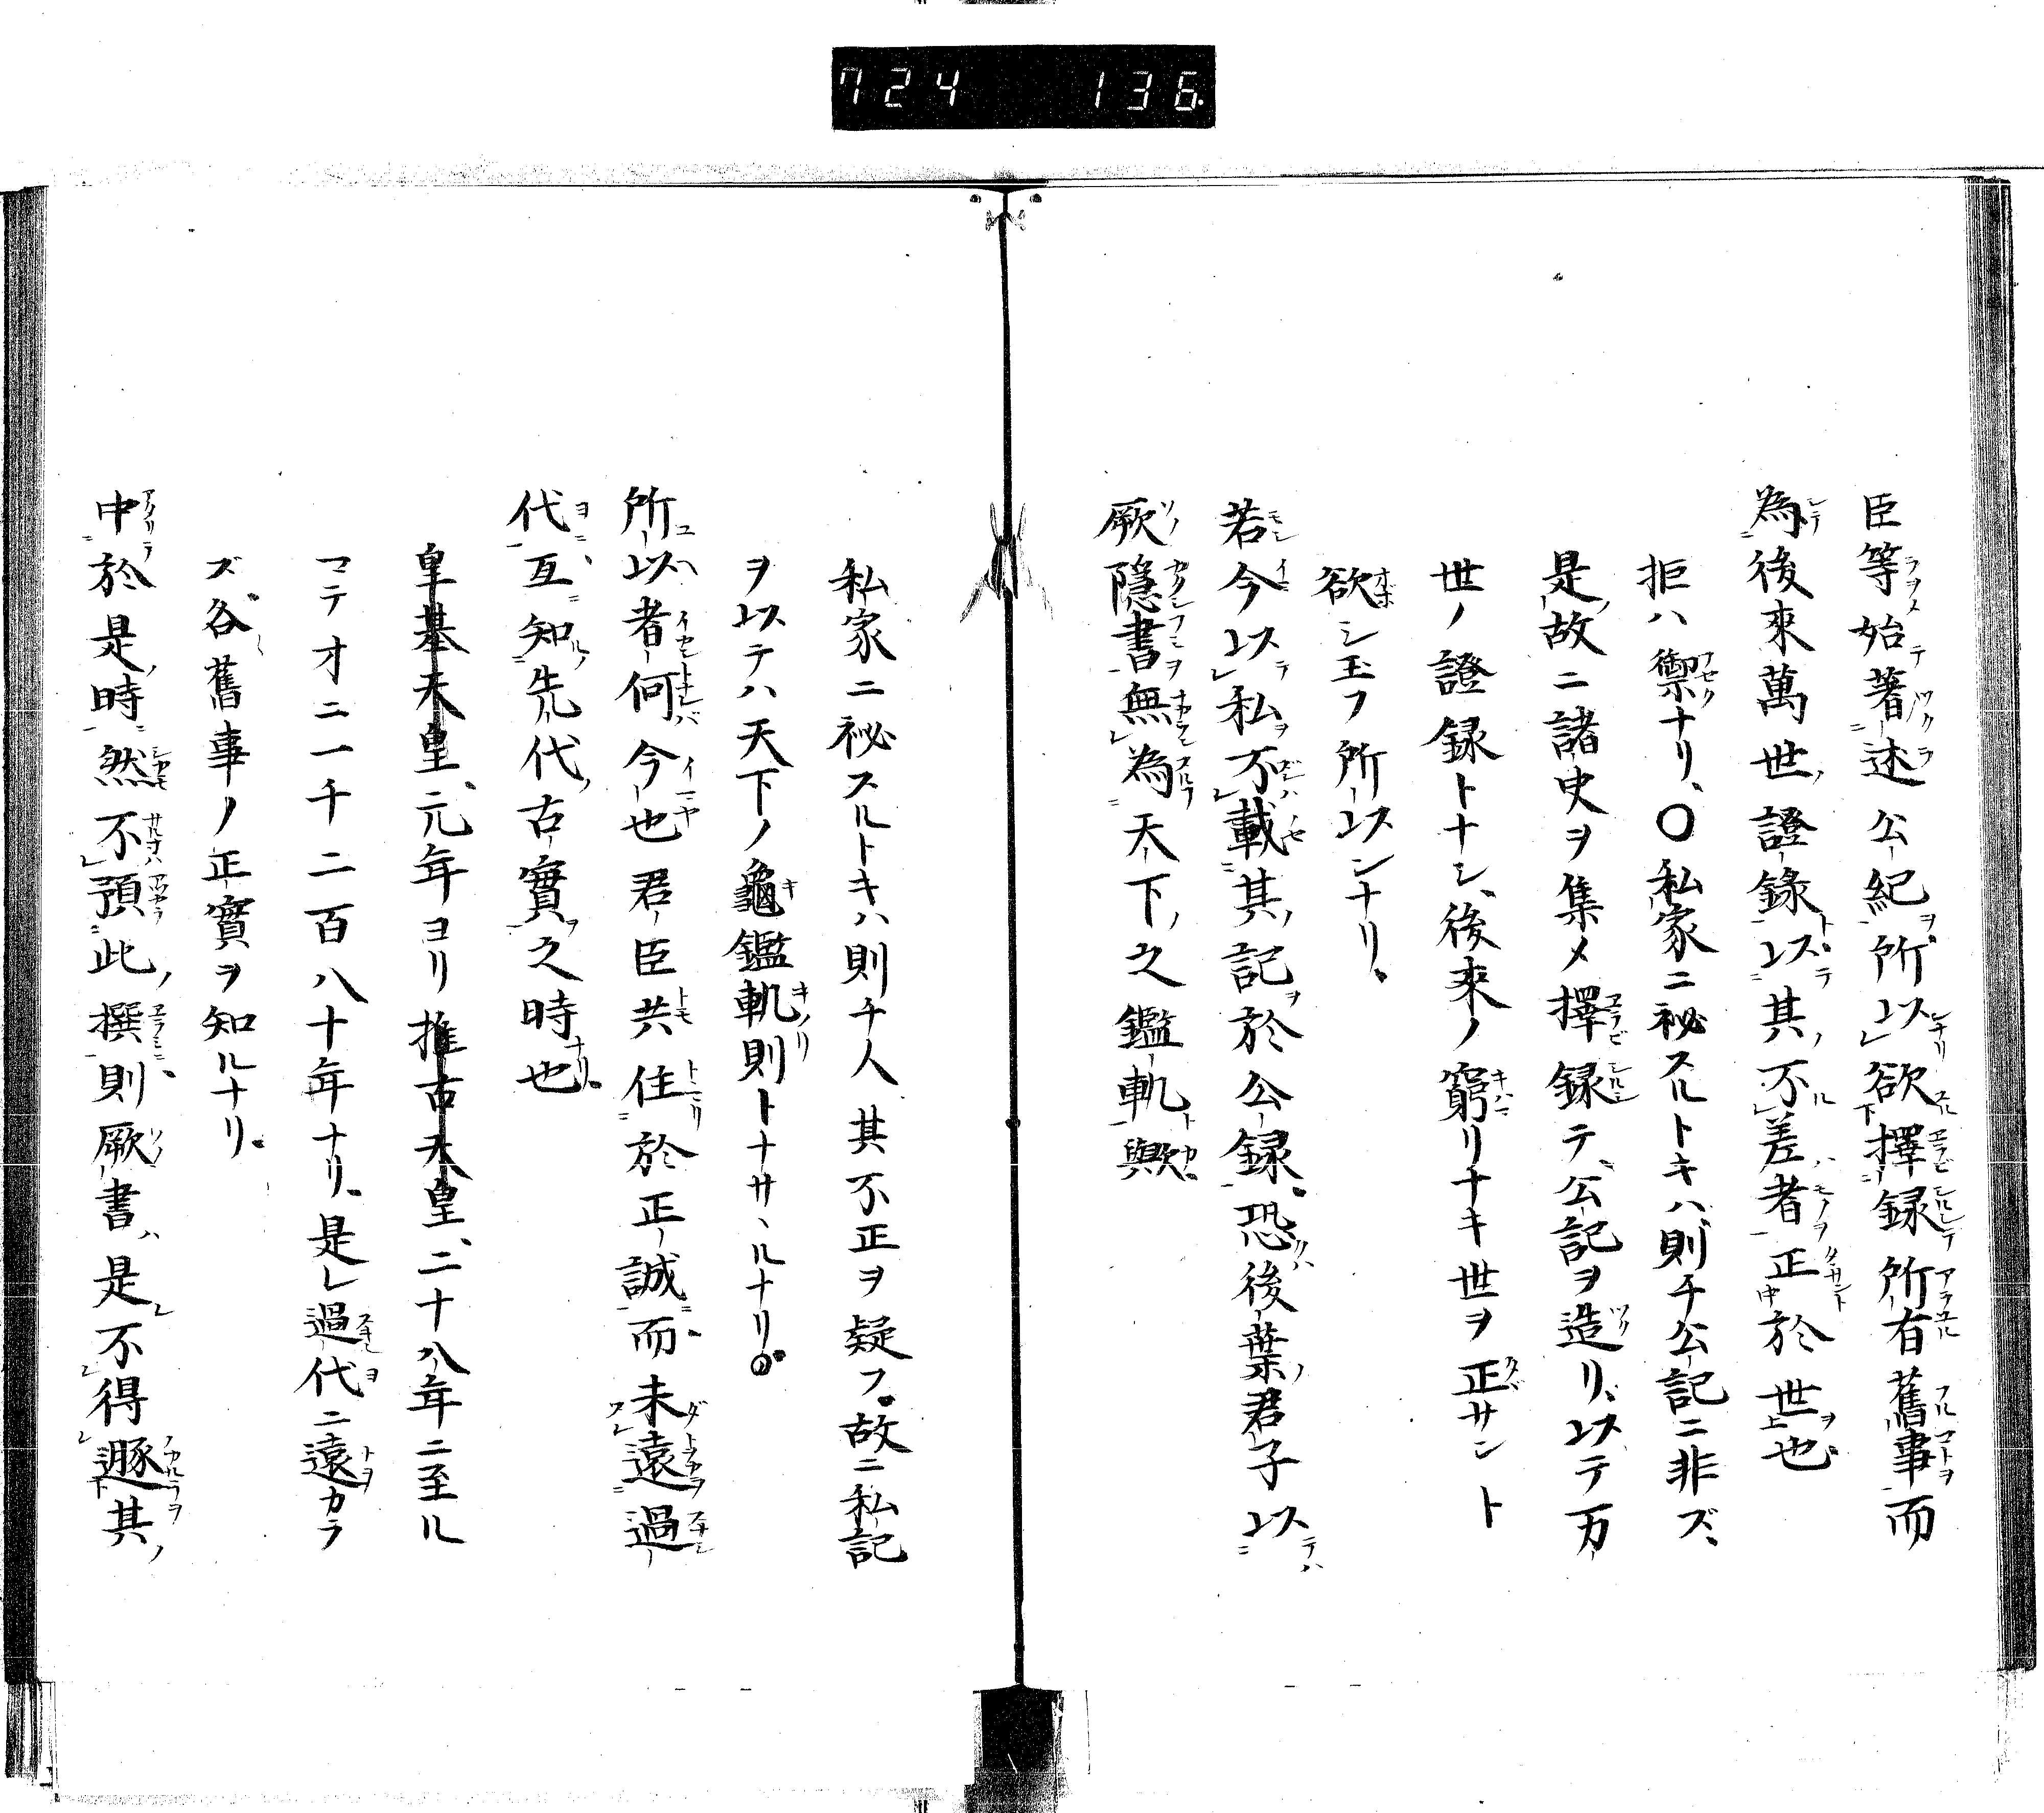 724 136
臣等始著述公紀所以欲擇録所有舊事而
為後來萬世證録以其不差者正於世也
拒ハ禦ナリ、〇私家ニ祕スルトキハ則チ公記ニ非ズ、
是故ニ諸史ヲ集メ擇録テ公記ヲ造リ、以テ万
世ノ證録トナシ、後來ノ窮リナキ世ヲ正サント
欲シ玉フ所以ンナリ、
若今以私不載其記於公録恐後葉君子以
厥隱書無為天下之鑑軌歟
私家ニ祕スルトキハ則チ人其不正ヲ疑フ。故ニ私記
ヲ以テハ天下ノ龜鑑軌則トナサヽルナリ。
所以者何今也君臣共住於正誠而未遠過
代互知先代古實之時也
皇基天皇、元年ヨリ推古天皇、二十八年ニ至ル
マテオニ一千二百八十年ナリ、是レ過代ニ遠カラ
ズ各舊事ノ正實ヲ知ルナリ。
中於是時然不預此撰則厥書是不得遯其